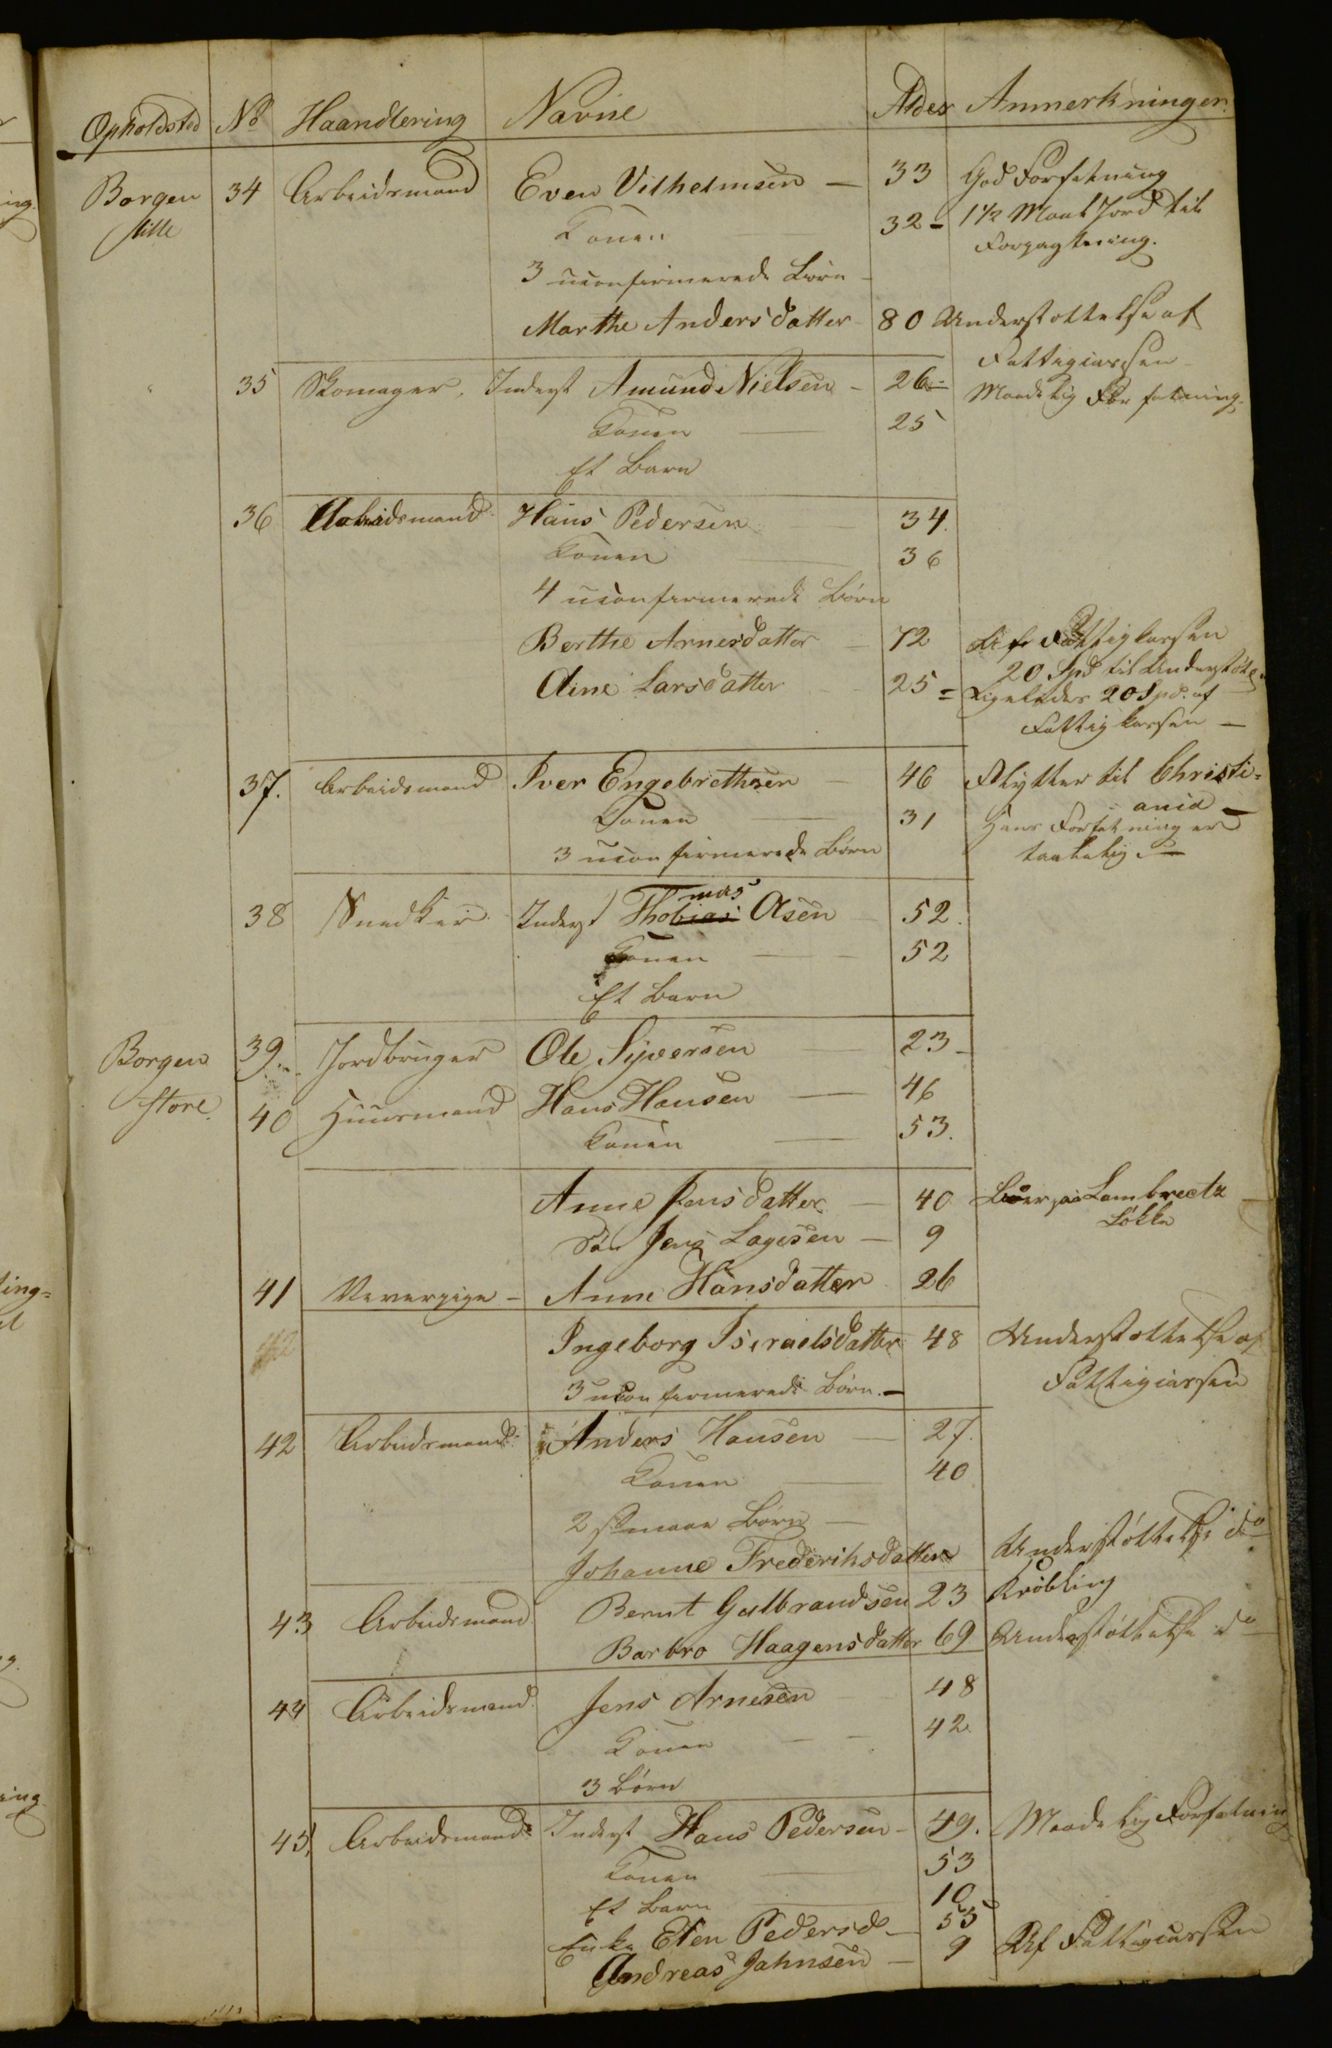 Opholdsted No Haandtering Navne Alder Anmerkninger.
Borgen lille 34 Arbeidsmand Even Vilhelmsen — 33 God Forfatning
Konen — 32 - 1 1/2 Maal Jord til
Forpagtning.
3 uconfirmerede Børn -
Marthe Andersdatter 80 Understøttelse af
Fattigcassen
35 Skomager. Inderst Amund Nielsen - 26 - Maadelig Forfatning.
Konen — 25
Et Barn
36 Arbeidsmand Hans Pedersen 34.
Konen 36
4 uconfirmerede Børn
Berthe Arnesdatter — 72 Af Fattigkassen
20 Spd til Understøttelse
Aine Larsdatter 25 = Ligeledes 20 Spd. af
Fattigkassen —
37. Arbeidsmand Iver Engebrethsen — 46 Flytter til Christi-
ania —
Konen — 31 Hans Forfatning er
taalelig. —
3 uconfirmerede Børn
38 Snedker Inderst Thobias mas Olsen 52.
Konen — 52
Et Barn
Borgen store. 39. Jordbruger Ole Syversen 23 -
40 Huusmand Hans Hansen — 46
Konen — 53.
Anne Jensdatter — 40 Boer paa Lambrectz
Løkke
Søn Jens Lagesen — 9
41 Væverpige - Anne Hansdatter 26
42 Ingeborg Isiraelsdatter 48 Understøttelse af
Fattigcassen
3 uconfirmerede Børn. —
42 Arbeidsmand Anders Hansen — 27.
Konen — 40
2 smaae Børn —
Johanne Frederiksdatter Understøttelse do
43 Arbeidsmand Bernt Gulbrandsen 23 Krøbling
Barbro Haagensdatter 69 Understøttelse do
44 Arbeidsmand Jens Arnesen 48
Konen — 42.
3 Børn
45. Arbeidsmand Inderst Hans Pedersen - 49. Maadelig Forfatning
Konen — 53
Et Barn — 10
Enke Elen Pedersd — 55
Andreas Jahnsen — 9 Af Fattigcassen